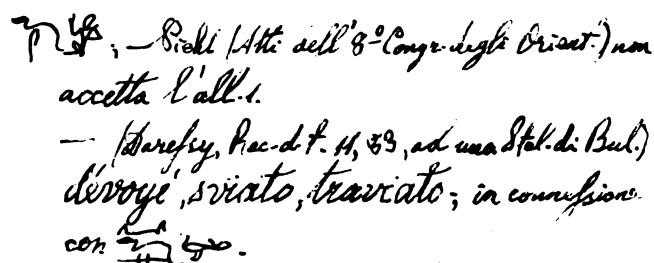 ; — Piehl (Atti dell'8º Congr. degli Orient.) non
accetta l'all. 1.
— (Daressy, Rec. d. t. 11, 83, ad una Stel. di Bul.)
dévoyé, sviato, traviato; in connessione
con .